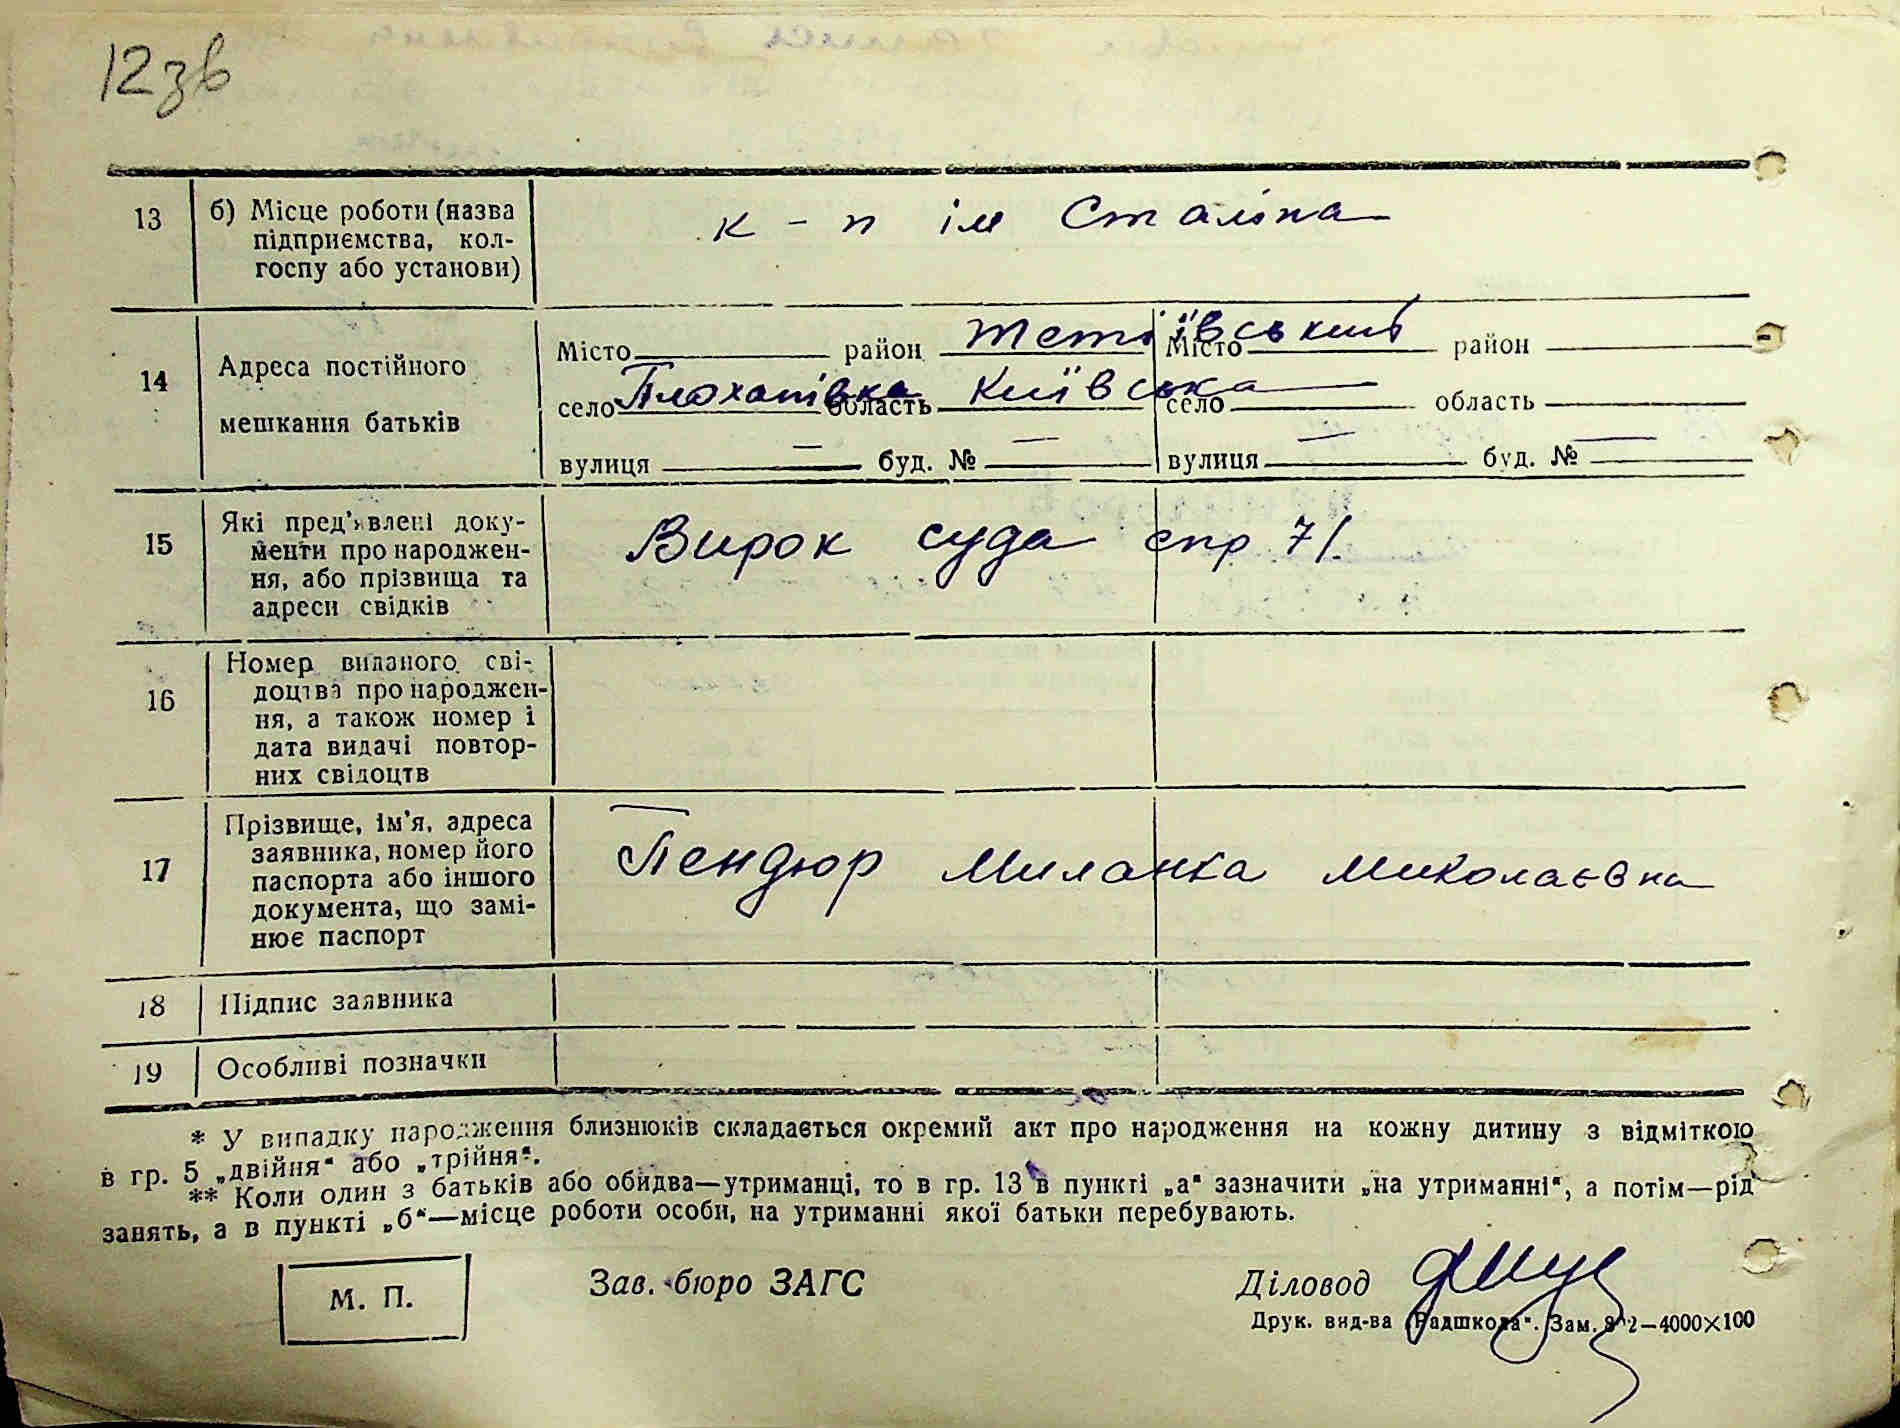 12зв
13 б) Місце роботи (назва
підприємства, кол-
госпу або установи)
к-п ім Сталіна
14 Адреса постійного
мешкання батьків
Місто район Тетіївський Місто район
село Плохатівка область Київська село область
вулиця — буд. № — вулиця — буд. № —
15 Які пред'явлені доку-
менти про народжен-
ня, або прізвища та
адреси свідків
Вирок суда спр 71.
16 Номер виданого сві-
доцтва про народжен-
ня, а також номер і
дата видачі повтор-
них свідоцтв
17 Прізвище, ім'я, адреса
заявника, номер його
паспорта або іншого
документа, що замі-
нює паспорт
Пендюр Миланка Миколаєвна
18 Підпис заявника
19 Особливі позначки
* У випадку народження близнюків складається окремий акт про народження на кожну дитину з відміткою
в гр. 5 „двійня" або „трійня".
** Коли один з батьків або обидва—утриманці, то в гр. 13 в пункті „а" зазначити „на утриманні", а потім—рід
занять, а в пункті „б"—місце роботи особи, на утриманні якої батьки перебувають.
М. П.
Зав. бюро ЗАГС
Діловод
Друк. вид-ва „Радшкола". Зам. 2—4000×100